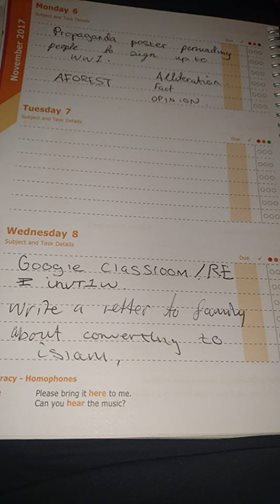 Monday 6
Subject and Task Details
Due
November 2017
Propaganda poster persuading
people to sign up to
WW1.
AFOREST Alliteration
Fact
OPINION
Tuesday 7
Subject and Task Details
Due
Wednesday 8
Subject and Task Details
Due
Google Classroom/RE
Write a letter to family
about converting to
islam,
racy - Homophones
Please bring it here to me.
Can you hear the music?